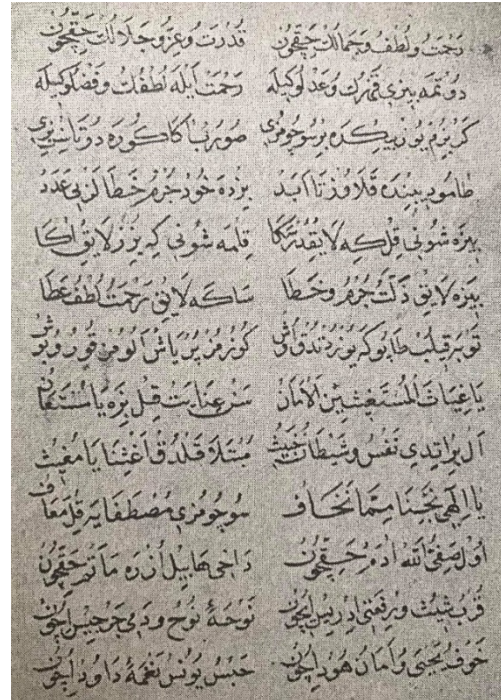 رَحْمَتُ و لُطْفُ و جَمَالُكْ حَقِّچُونْ قُدْرَتُ و عِزُّ و جَلَالُكْ حَقِّچُونْ
دُوتْمَه بِيزِي قَهْرُكُ و عَدْلُوكِيلَه رَحْمَتْ اَيْلَه لُطْفُكُ و فَضْلُوكِيلَه
كَرْ يُزُمْ يُوزْ بِيكِرَه بِرْ سُوچُومُزِي صُورْ بَاكَا كُورَه دُرْتَاسِزِي
طَامُودِ بِينْدَه قَلَاوُزْ تَا اَبَدْ بِزْدَه خُودْ جُرْمُ خَطَالَرْ بِي عَدَدْ
بِيزَه شُونِي قِلْ كِه لَايِقْدُرْ سَكَا قِلْمَه شُونِي كِه بِزُزْ لَايِقْ اكَا
بِيزَه لَايِقْ ذَلَّتُ جُرْمُ و خَطَا سَاكَه لَايِقْ رَحْمَتُ لُطْفُ عَطَا
تَوْبَه قِيلِبْ طَابُوكَه يُوزْ دُنْدُقْ اُشْ كُوزُمُزْ پُرْ يَاشْ اَلُومُزْ قُورُو بُوشْ
يَا غِيَاثَ الْمُسْتَغِيثِينَ الْاَمَانْ سَنْ عِنَايَتْ قِلْ بِزَه يَا مُسْتَعَانْ
اَلْ بِرْ اِتْدِي نَفْسُ و شَيْطَانِ خَبِيثْ مُبْتَلَا قَلْدُقْ اَغِثْنَا يَا مُغِيثْ
يَا اِلٰهِي نَجِّنَا مِمَّا نَخَافْ سُوچُومُزِي مُصْطَفَايَه قِلْ مُعَافْ
اَوَّلْ صَفِيُّ اللّٰهْ اٰدَمْ حَقِّچُونْ دَاخِي هَابِيلْ اُزَرَه مَاتَمْ حَقِّچُونْ
قُرْبِ شِيثُ و رِفْعَتِ اِدْرِيسْ اِچُونْ نَوْحَهٔ نُوحُ و دَمِ جَرْجِيسْ اِچُونْ
خَوْفِ يَحْيَى و اَمَانِ هُودْ اِچُونْ حَبْسِ يُونُسْ نَغْمَهٔ دَاوُدْ اِچُونْ